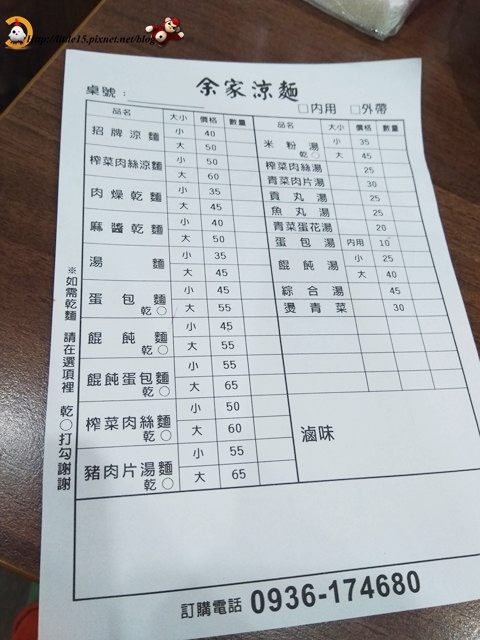 http://little15.pixnet.net/blog
余家涼麵
桌號：
□內用 □外帶
品名 大小 價格 數量
招牌涼麵 小 40
大 50
榨菜肉絲涼麵 小 50
大 60
肉燥乾麵 小 35
大 45
麻醬乾麵 小 40
大 50
湯麵 小 35
大 45
蛋包麵 小 45
乾○ 大 55
餛飩麵 小 45
乾○ 大 55
餛飩蛋包麵 小 55
乾○ 大 65
榨菜肉絲麵 小 50
乾○ 大 60
豬肉片湯麵 小 55
乾○ 大 65
品名 大小 價格 數量
米粉湯 小 35
乾○ 大 45
榨菜肉絲湯 25
青菜肉片湯 30
貢丸湯 25
魚丸湯 25
青菜蛋花湯 20
蛋包湯 內用 10
餛飩湯 小 25
大 40
綜合湯 45
燙青菜 30
滷味
※如需乾麵 請在選項裡 乾○打勾謝謝
訂購電話 0936-174680